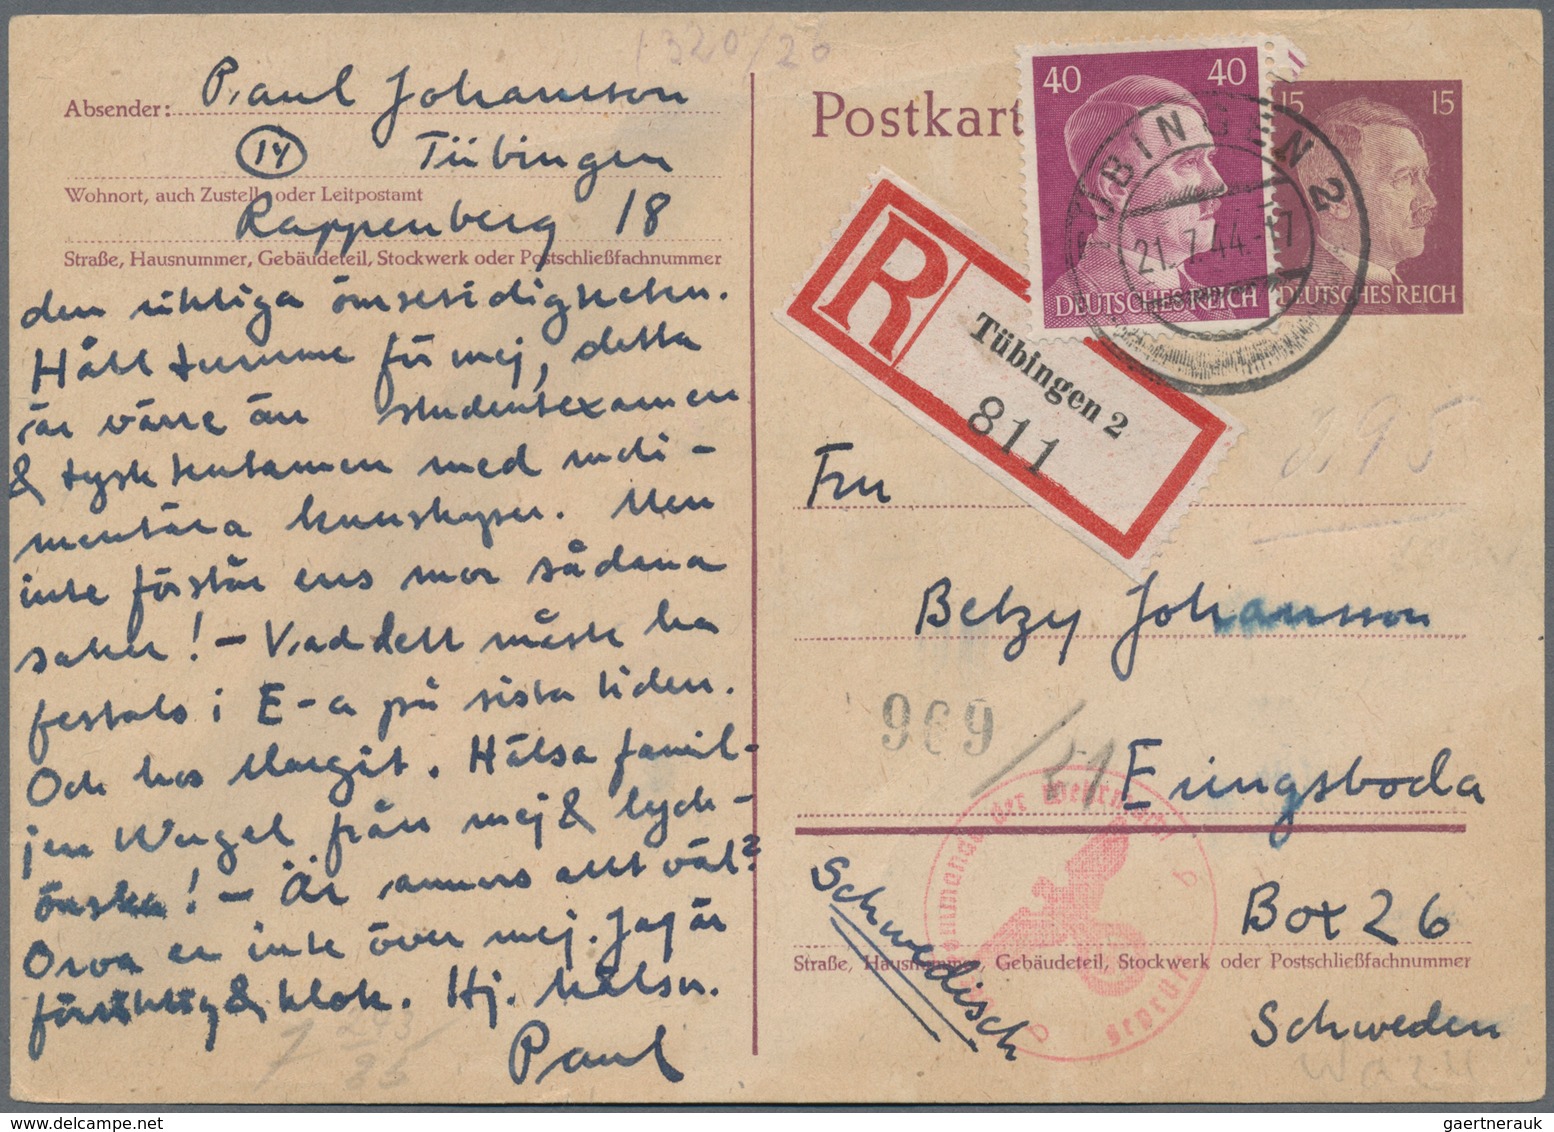 Absender: Paul Johansson
(14) Tübingen
Wohnort, auch Zustell- oder Leitpostamt
Rappenberg 18
Straße, Hausnummer, Gebäudeteil, Stockwerk oder Postschließfachnummer
den riktiga ömsesidigheten.
Håll tumme för mej, detta
är värre än studentexamen
& tysk tentamen med rudi-
mentära kunskaper. Men
inte förstår ens mor sådana
saker! - Vad dett måste ha
festats i E-a på sista tiden.
Och hos Margit. Hälsa famil-
jen Wugel från mej & lyck-
önska! - Är annars allt väl?
Oroa er inte över mej. Jag är
försiktig & klok. Hj. hälsn.
Paul
1320/26
Postkart
40 40
DEUTSCHES REICH
15 15
DEUTSCHES REICH
TÜBINGEN 2
21.7.44.-17
R
Tübingen 2
811
Fru
Betzy Johansson
969
/21
Eringsboda
Box 26
Straße, Hausnummer, Gebäudeteil, Stockwerk oder Postschließfachnummer
Schweden
Schwedisch
der Wehrmacht
geprüft
b
gaertnerauk